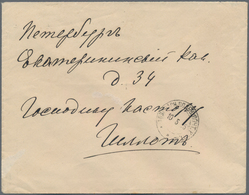 Петербургъ
Екатерининскій Кан.
д. 34
Господину Пастору
Гиллотъ